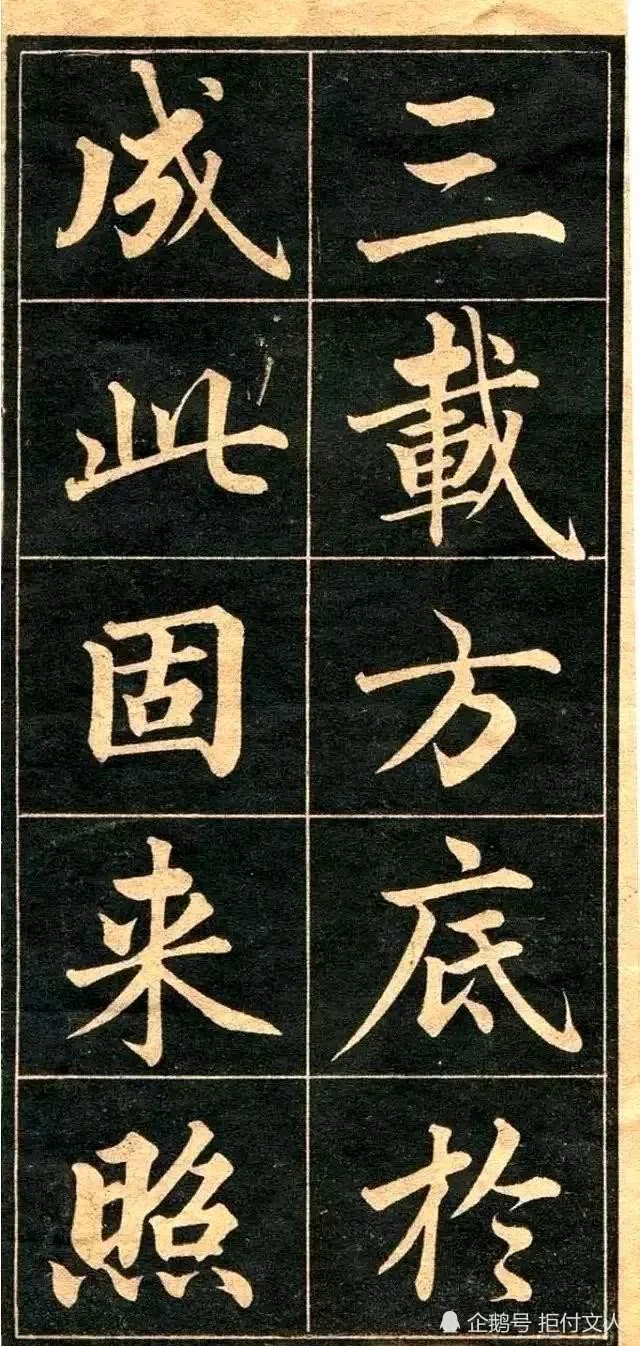 三載方底於
成此固来照
企鹅号 拒付文人